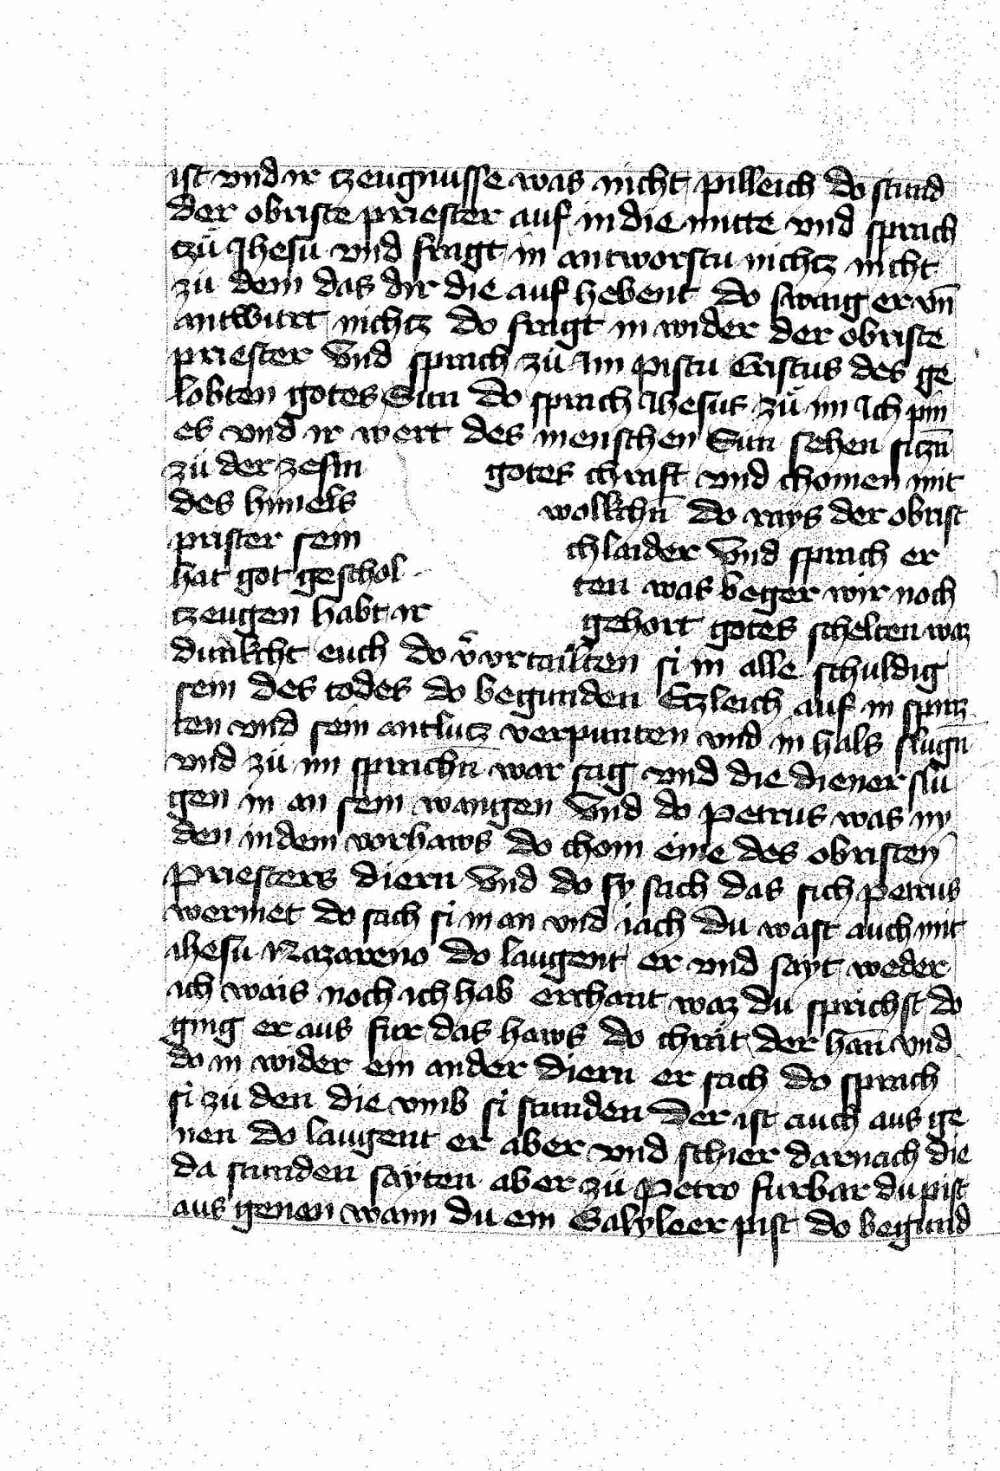 ist vnd ir tzeugnusse was nicht pilleich do stund
der obriste priester auf in die mitte vnd sprach
tzů Jhesu vnd fragt in antworstu nichtz nicht
zů dem das dir die auf hebent do swaig er vn̄
antwurt nichtz do fragt in wider der obriste
priester Vnd sprach zů im pistu Cristus des ge
lobten gotes Sun do sprach Jhesus zů im Ich pin
es vnd ir wert des menschen Sun sehen siczn̄
zů der zesm gotes chraft vnd chomen mit
des himels wolkchn̄ do rays der obrist
prister sein chlaider Vnd sprach er
hat got geschol ten was beger wir noch
tzeugen habt ir gehort gotes schelten waz
dunkcht euch do v̊ vrtailten si in alle schuldig
sein des todes do begunden Etzleich auf in spirtz
ten vnd sein antlutz verpunten vnd in hals slugn̄
vnd zů im sprachn̄ war sag vnd die diener slu
gen in an sein wangen Vnd do Petrus was ny
den in dem vorhaws do chom eine des obristen
Priesters diern Vnd do sy sach das sich petrus
wermet do sach si in an vnd iach du wast auch mit
ihesu Nazareno do laugent er vnd sayt weder
ich wais noch ich hab erchant waz du sprichst do
ging er aus fur das haws do chrăt der han̄ vnd
do in wider ein ander diern er sach do sprach
si zů den die vmb si stunden Der ist auch aus ge
nen do laugent er aber vnd schier darnach die
da stunden sayten aber zů Petro furbar du pist
aus genen wann du ein Galyleer pist do begund